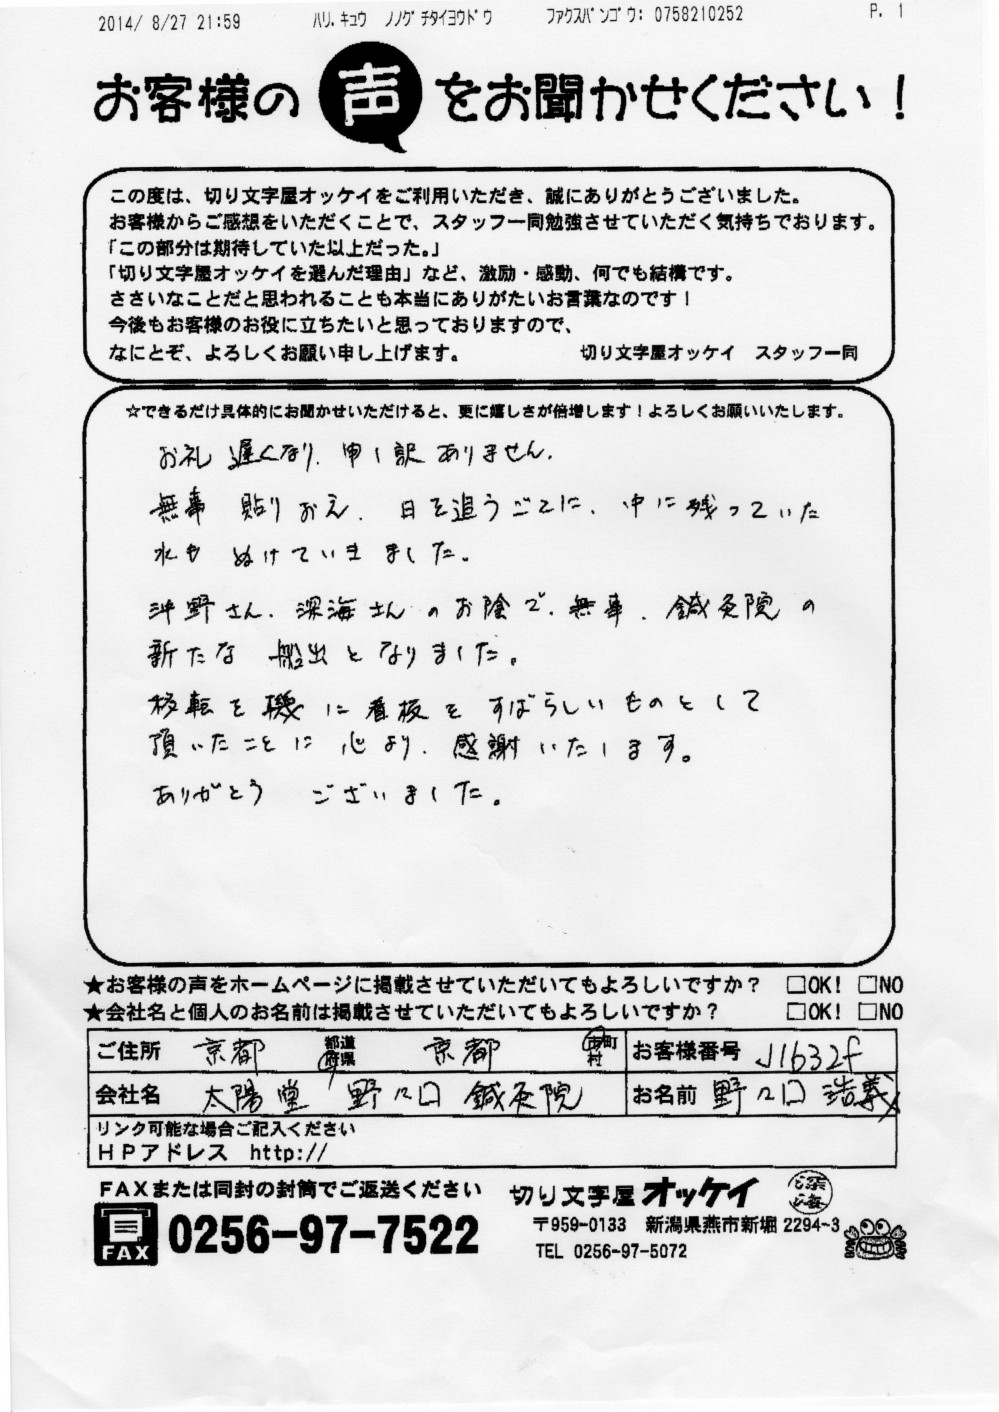 2014/ 8/27 21:59 ハリ.キュウ ノノグチタイヨウドウ ファクスバンゴウ: 0758210252 P. 1
お客様の声をお聞かせください！
この度は、切り文字屋オッケイをご利用いただき、誠にありがとうございました。
お客様からご感想をいただくことで、スタッフ一同勉強させていただく気持ちでおります。
「この部分は期待していた以上だった。」
「切り文字屋オッケイを選んだ理由」など、激励・感動、何でも結構です。
ささいなことだと思われることも本当にありがたいお言葉なのです！
今後もお客様のお役に立ちたいと思っておりますので、
なにとぞ、よろしくお願い申し上げます。 切り文字屋オッケイ スタッフ一同
☆できるだけ具体的にお聞かせいただけると、更に嬉しさが倍増します！よろしくお願いいたします。
お礼 遅くなり、申し訳ありません。
無事 貼りおえ、日を追うごとに、中に残っていた
水も ぬけていきました。
沖野さん、深海さんのお陰で、無事、鍼灸院の
新たな 船出となりました。
移転を機に看板をすばらしいものとして
頂いたことに心より、感謝いたします。
ありがとう ございました。
★お客様の声をホームページに掲載させていただいてもよろしいですか？ □OK! □NO
★会社名と個人のお名前は掲載させていただいてもよろしいですか？ □OK! □NO
ご住所 京都 都道府県 京都 市町村 お客様番号 J1632f
会社名 太陽堂 野々口 鍼灸院 お名前 野々口 浩義
リンク可能な場合ご記入ください
ＨＰアドレス http://
ＦＡＸまたは同封の封筒でご返送ください 切り文字屋 オッケイ 深海
FAX 0256-97-7522 〒959-0133 新潟県燕市新堀 2294-3
TEL 0256-97-5072